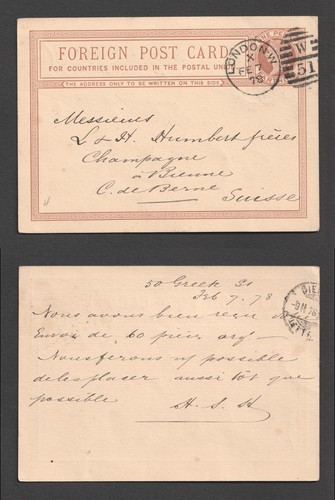 FOREIGN POST CARD
FOR COUNTRIES INCLUDED IN THE POSTAL UN
THE ADDRESS ONLY TO BE WRITTEN ON THIS SIDE
LONDON·W
X
FE 7
78
W
51
Messieurs
L & H. Humbert frères
Champagne
à Bienne
C. de Berne
Suisse
50 Greek St
Feb 7. 78
Nous avons bien reçu
Envoi de 60 pièces arg
Nous ferons possible
de les placer aussi tôt que
possible
H. S. H
BIE